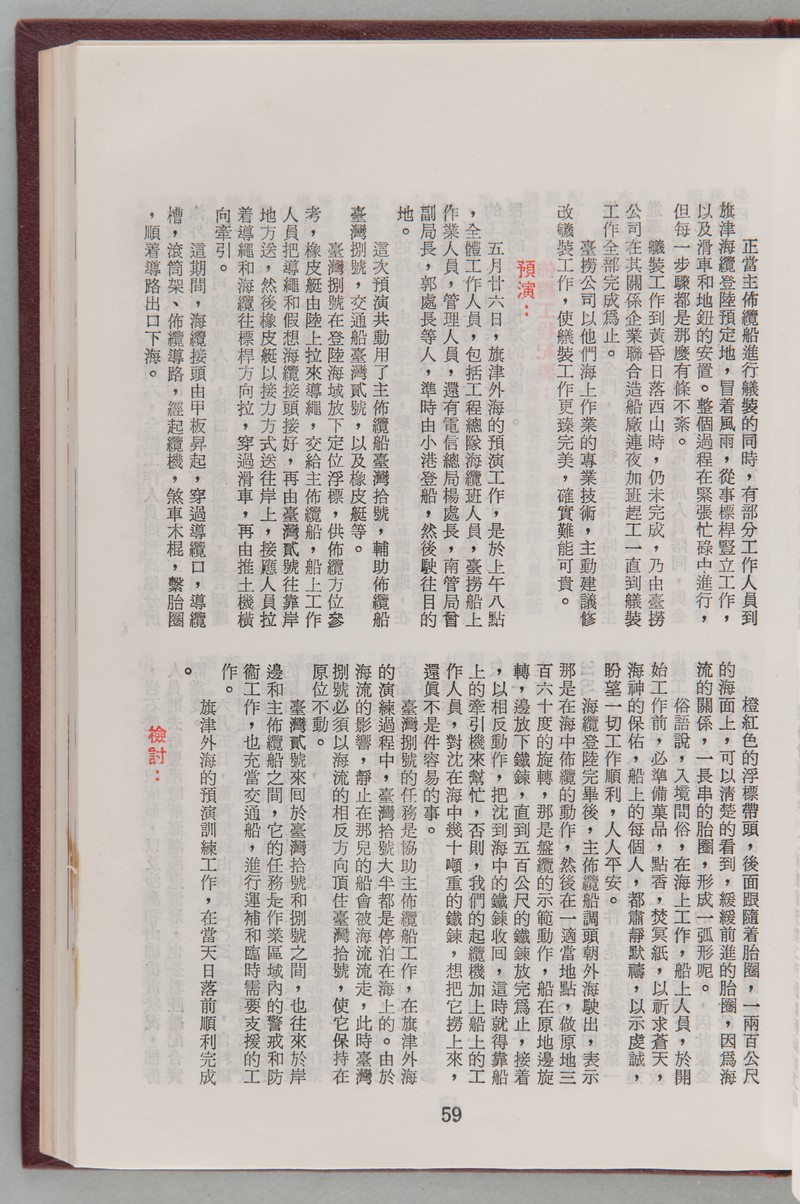 正當主佈纜船進行艤裝的同時，有部分工作人員到
旗津海纜登陸預定地，冒着風雨，從事標桿豎立工作，
以及滑車和地鈕的安置。整個過程在緊張忙碌中進行，
但每一步驟都是那麼有條不紊。
艤裝工作到黃昏日落西山時，仍未完成，乃由臺撈
公司在其關係企業聯合造船廠連夜加班趕工一直到艤裝
工作全部完成爲止。
臺撈公司以他們海上作業的專業技術，主動建議修
改艤裝工作，使艤裝工作更臻完美，確實難能可貴。
預演：
五月廿六日，旗津外海的預演工作，是於上午八點
，全體工作人員，包括工程總隊海纜班人員，臺撈船上
作業人員，管理人員，還有電信總局楊處長，南管局曾
副局長，郭處長等人，準時由小港登船，然後駛往目的
地。
這次預演共動用了主佈纜船臺灣拾號，輔助佈纜船
臺灣捌號，交通船臺灣貳號，以及橡皮艇等。
臺灣捌號在登陸海域放下定位浮標，供佈纜方位參
考，橡皮艇由陸上拉來導繩，交給主佈纜船，船上工作
人員把導繩和假想海纜接頭接好，再由臺灣貳號往靠岸
地方送，然後橡皮艇以接力方式送往岸上，接應人員拉
着導繩和海纜往標桿方向拉，穿過滑車，再由推土機橫
向牽引。
這期間，海纜接頭由甲板昇起，穿過導纜口，導纜
槽，滾筒架、佈纜導路，經起纜機，煞車木棍，繫胎圈
，順着導路出口下海。
橙紅色的浮標帶頭，後面跟隨着胎圈，一兩百公尺
的海面上，可以淸楚的看到，緩緩前進的胎圈，因爲海
流的關係，一長串的胎圈，形成一弧形呢。
俗語說，入境問俗，在海上工作，船上人員，於開
始工作前，必準備菓品，點香，焚冥紙，以祈求蒼天，
海神的保佑，船上的每個人，都肅靜默禱，以示虔誠，
盼望一切工作順利，人人平安。
海纜登陸完畢後，主佈纜船調頭朝外海駛出，表示
那是在海中佈纜的動作，然後在一適當地點，做原地三
百六十度的旋轉，那是盤纜的示範動作，船在原地邊旋
轉，邊放下鐵鍊，直到五百公尺的鐵鍊放完爲止，接着
，以相反動作，把沈到海中的鐵鍊收回，這時就得靠船
上的牽引機來幫忙，否則，我們的起纜機加上船上的工
作人員，對沈在海中幾十噸重的鐵鍊，想把它撈上來，
還眞不是件容易的事。
臺灣捌號的任務是協助主佈纜船工作，在旗津外海
的演練過程中，臺灣拾號大半都是停泊在海上的。由於
海流的影響，靜止在那兒的船會被海流流走，此時臺灣
捌號必須以海流的相反方向頂住臺灣拾號，使它保持在
原位不動。
臺灣貳號來回於臺灣拾號和捌號之間，也往來於岸
邊和主佈纜船之間，它的任務是作業區域內的警戒和防
衞工作，也充當交通船，進行運補和臨時需要支援的工
作。
旗津外海的預演訓練工作，在當天日落前順利完成
。
檢討：
59